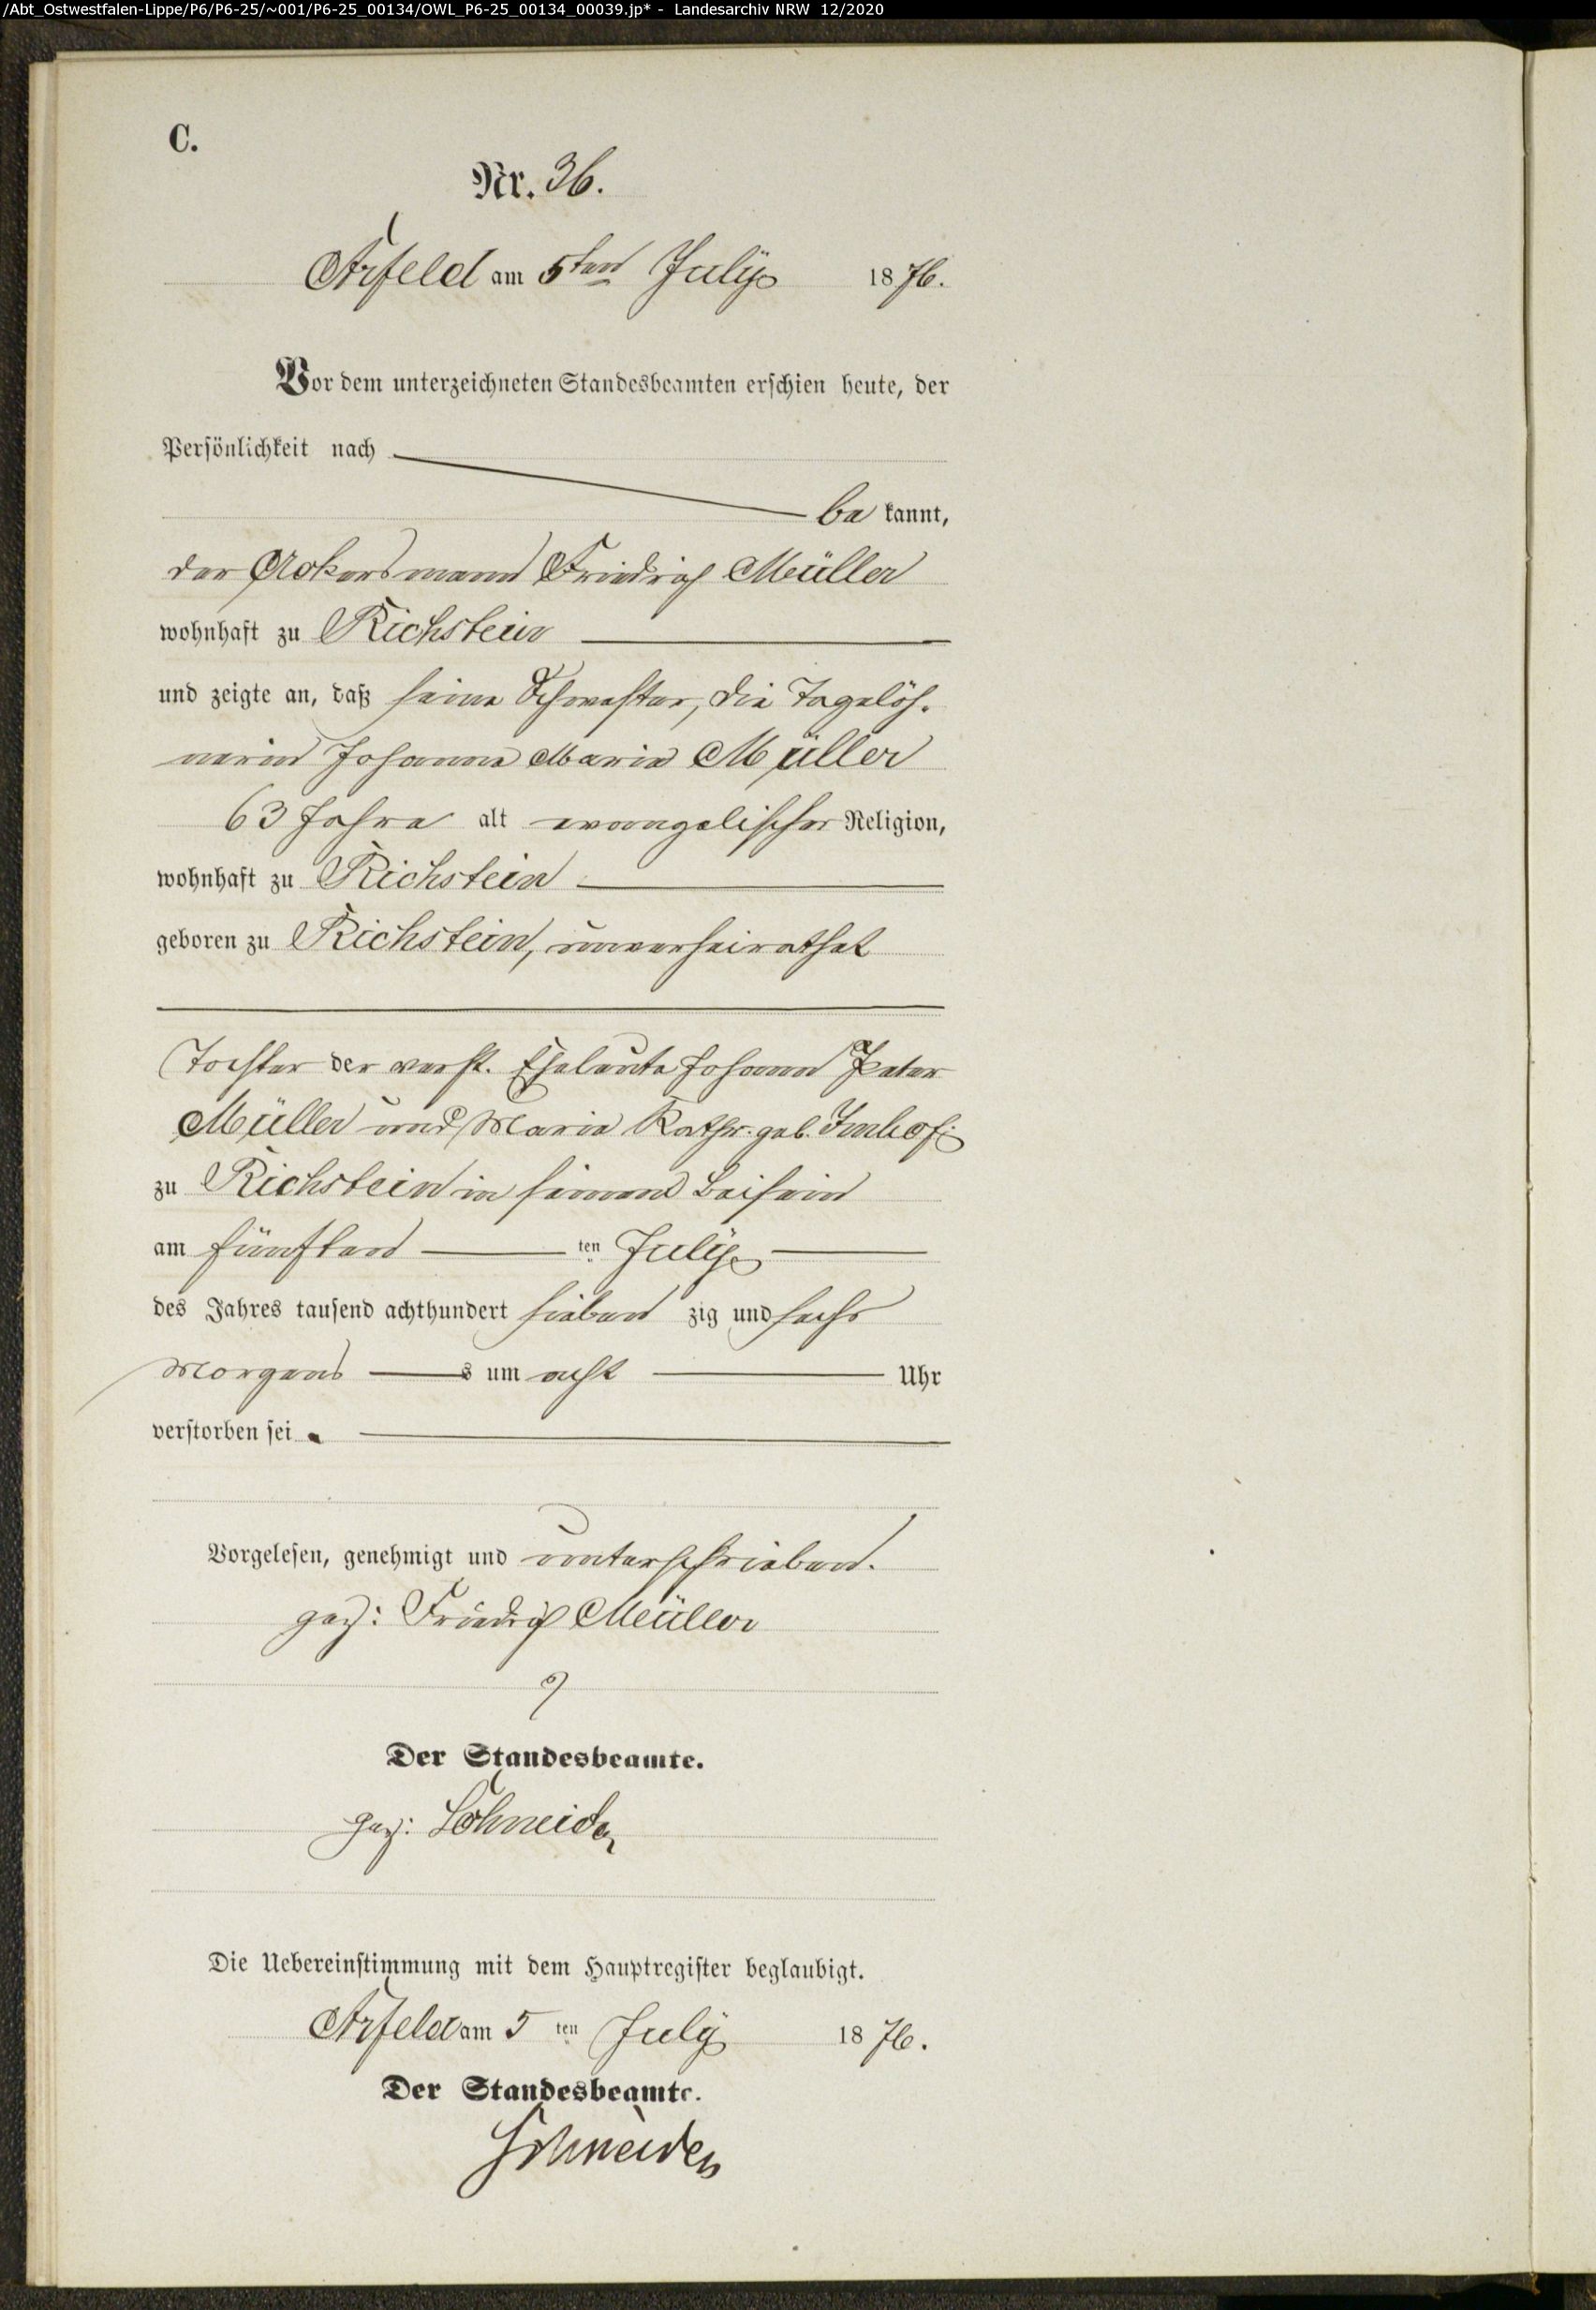 /Abt_Ostwestfalen-Lippe/P6/P6-25/~001/P6-25_00134/OWL_P6-25_00134_00039.jp* - Landesarchiv NRW 12/2020
C.
Nr. 36.
Arfeld am 5ten July 1876.
Vor dem unterzeichneten Standesbeamten erschien heute, der
Persönlichkeit nach
be kannt,
der Ackersmann Friedrich Müller
wohnhaft zu Richstein
und zeigte an, daß seine Schwester, die Tagelöh-
nerin Johanna Maria Müller
63 Jahre alt evangelischer Religion,
wohnhaft zu Richstein
geboren zu Richstein, unverheirathet
Tochter der verst. Eheleute Johann Peter
Müller und Maria Kathr. geb. Imhof
zu Richstein in seinem Beisein
am fünften ten July
des Jahres tausend achthundert sieben zig und sechs
Morgens s um acht Uhr
verstorben sei.
Vorgelesen, genehmigt und unterschrieben.
gez: Friedrich Müller
Der Standesbeamte.
gez: Schneider
Die Uebereinstimmung mit dem Hauptregister beglaubigt.
Arfeld am 5 ten July 1876.
Der Standesbeamte.
Schneider